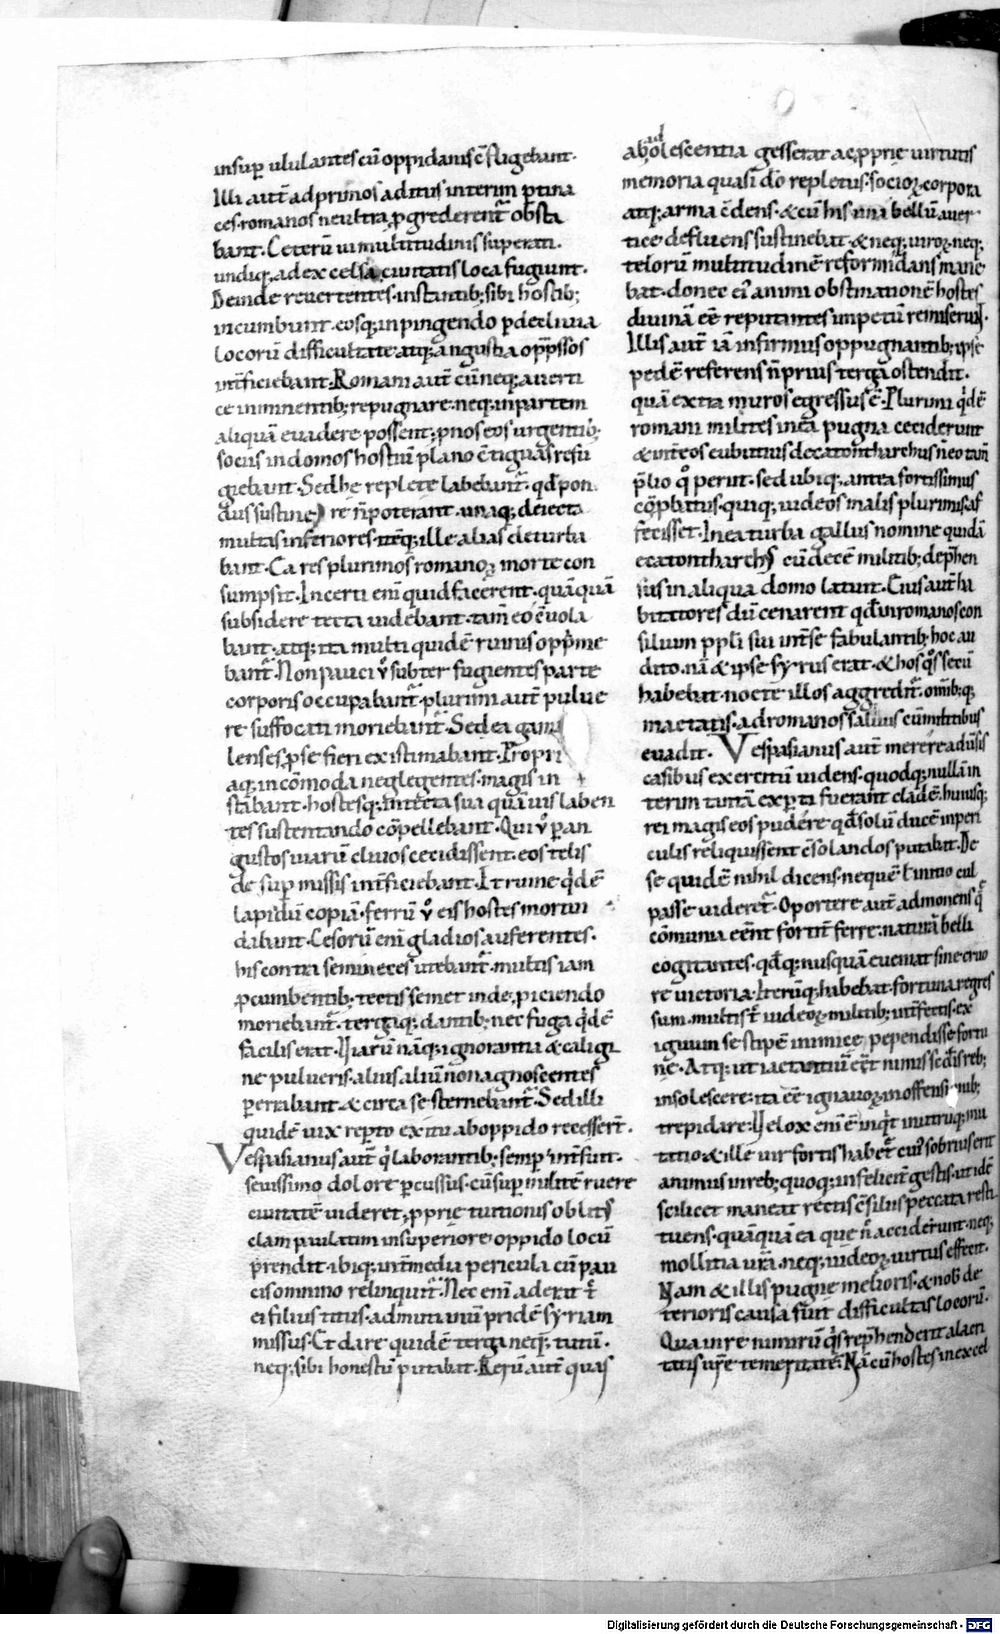 insup ululantes cū oppidanis c̄fligebant·
Illi aut̄ ad primos aditus interim ptina
ces·romanos ne ultra ꝓgrederent̄ obsta
bant·Ceterū ui multitudinis superati·
undiq; ad excelsa ciuitatis loca fugiunt·
Deinde reuertentes·instantib; sibi hostib;
incumbunt·eosq; inpingendo p decliuia
locorū difficultate atq; angustia opp̄ssos
int̄ficiebant·Romani aut̄ cū neq; auerti
ce inminentib; repugnare·neq; inpartem
aliquā euadere possent·pnos eos urgentib;
sociis in domos hostiū plano c̄tiguas refu
giebant·Sed he replete labebant̄·qđ pon
dus sustine re n̄ poterant·unaq; deiecta
multas inferiores·itēq; ille alias deturba
bant·Ea res plurimos romanoꝝ morte con
sumpsit·Incerti eni quid facerent·quāquā
subsidere tecta uidebant·tam̄ eo c̄uola
bant·atq; ita multi quidē ruinis opp̄me
bant̄·Non pauci ỽ subter fugientes parte
corporis occupabant̄·plurimi aut̄ pulue
re suffocati moriebant̄·Sed ea gama
lenses ꝓ se fieri existimabant·Propri
aq; incōmoda neglegentes·magis in
stabant·hostesq; in tecta sua quāuis laben
tes sustentando cōpellebant·Qui ỽ p an
gustos uiarū cliuos cecidissent·eos telis
de sup missis int̄ficiebant·Et ruine q̇dē
lapidū copiā·ferrū ỽ eis hostes mortui
dabant·Cesorū eni gladios auferentes·
his contra semineces utebant̄·multi s iam
ꝓcumbentib; tectis semet inde ꝓiciendo
moriebant̄·tergaq; dantib; nec fuga q̇dē
facilis erat·Viarū nāq; ignorantia & caligi
ne pulueris·alius aliū non agnoscentes
perrabant·& circa se sternebant̄·Sed illi
quidē uix repto exitu ab oppido recessert̄·
Vespasianus aut̄ q̇ laborantib; semp int̄fuit·
seuissimo dolore pcussus·cū sup militē ruere
ciuitatē uideret·ꝓprię tuitionis oblit
clam paulatim in superiore oppido locū
p̄rendit·ibiq; int̄ media pericula cū pau
cis omnino relinquit̄·Nec eni aderat t̄
ei filius titus·ad mutianū pridē syriam
missus·Et dare quidē terga neq; tutū·
neq; sibi honestū putabat·Rerū aut̄ quas
ab adolescentia gesserat ac ꝓprie uirtutis
memoria quasi dō repletus·socioꝝ corpora
atq; arma c̄dens·& cū his una bellū auer
tice defluens sustinebat·& neq; uiroꝝ neq;
telorū multitudinē reformidans mane
bat·donec ei animi obstinationē hostes
diuinā eē reputantes impetū remiserunt·
Illis aut̄ iā infirmius oppugnantib; ipse
pedē referens n̄ prius terga ostendit·
quā extra muros egressus ē·Plurimi q̇dē
romani milites in ea pugna ceciderunt
& int̄ eos cubitius decatontharchus n̄ eo tam̄
p̄lio quo periit·sed ubiq; antea fortissimus
cōpbatus·quiq; iudeos malis plurimis af
fecisset·In ea turba gallus nomine quidā
ecatontharchus cū decē militib; dephen
sus in aliqua domo latuit·Cuius aut̄ ha
bitatores dū cenarent qđ in romanos con
silium ppli sui int̄ se fabulantib; hoc au
dito·nā & ipse syrus erat·& hos quos secū
habebat·nocte illos aggredit̄·omib;q;
mactatis·ad romanos saluus cū militibus
euadit· Vespasianus aut̄ merere aduersis
casibus exercitū uidens·quodq; nullā in
terim tantā experti fuerant cladē·huiusq;
rei magis eos pudere qđ solū ducē in peri
culis reliquissent c̄solandos putabat·De
se quidē nihil dicens·ne quē t̄ initio cul
passe uideret̄·Oportere aut̄ admonens q
cōmunia eent fortit̄ ferre·naturā belli
cogitantes·qđq; nusquā eueniat sine cruo
re uictoria·Iterūq; habebat fortuna regres
sum·multis t̄ iudeoꝝ militib; int̄fectis·ex
iguum se stipē inimice pependisse fortu
ne·Atq; ut iactantiū eēt nimis secdis reb;
insolescere·ita eē ignauoꝝ in offensionib;
trepidare·Velox eni ē inq̇t in utrūq; mu
tatio·& ille uir fortis habet̄ cui sobrius erit
animus in reb; quoq; infelicit̄ gestis·ut idē
scilicet maneat rectis c̄siliis peccata resti
tuens·quāquā ea que n̄ acciderunt·neq;
mollitia ur̄a·neq; iudeoꝝ uirtus effecit·
Nam & illis pugne melioris·& nob de
terioris causa fuit difficultas locorū·
Qua in re nimirū q̇s rephenderit alacri
tatis ur̄e temeritatē·Nā cū hostes in excel
Digitalisierung gefördert durch die Deutsche Forschungsgemeinschaft - DFG